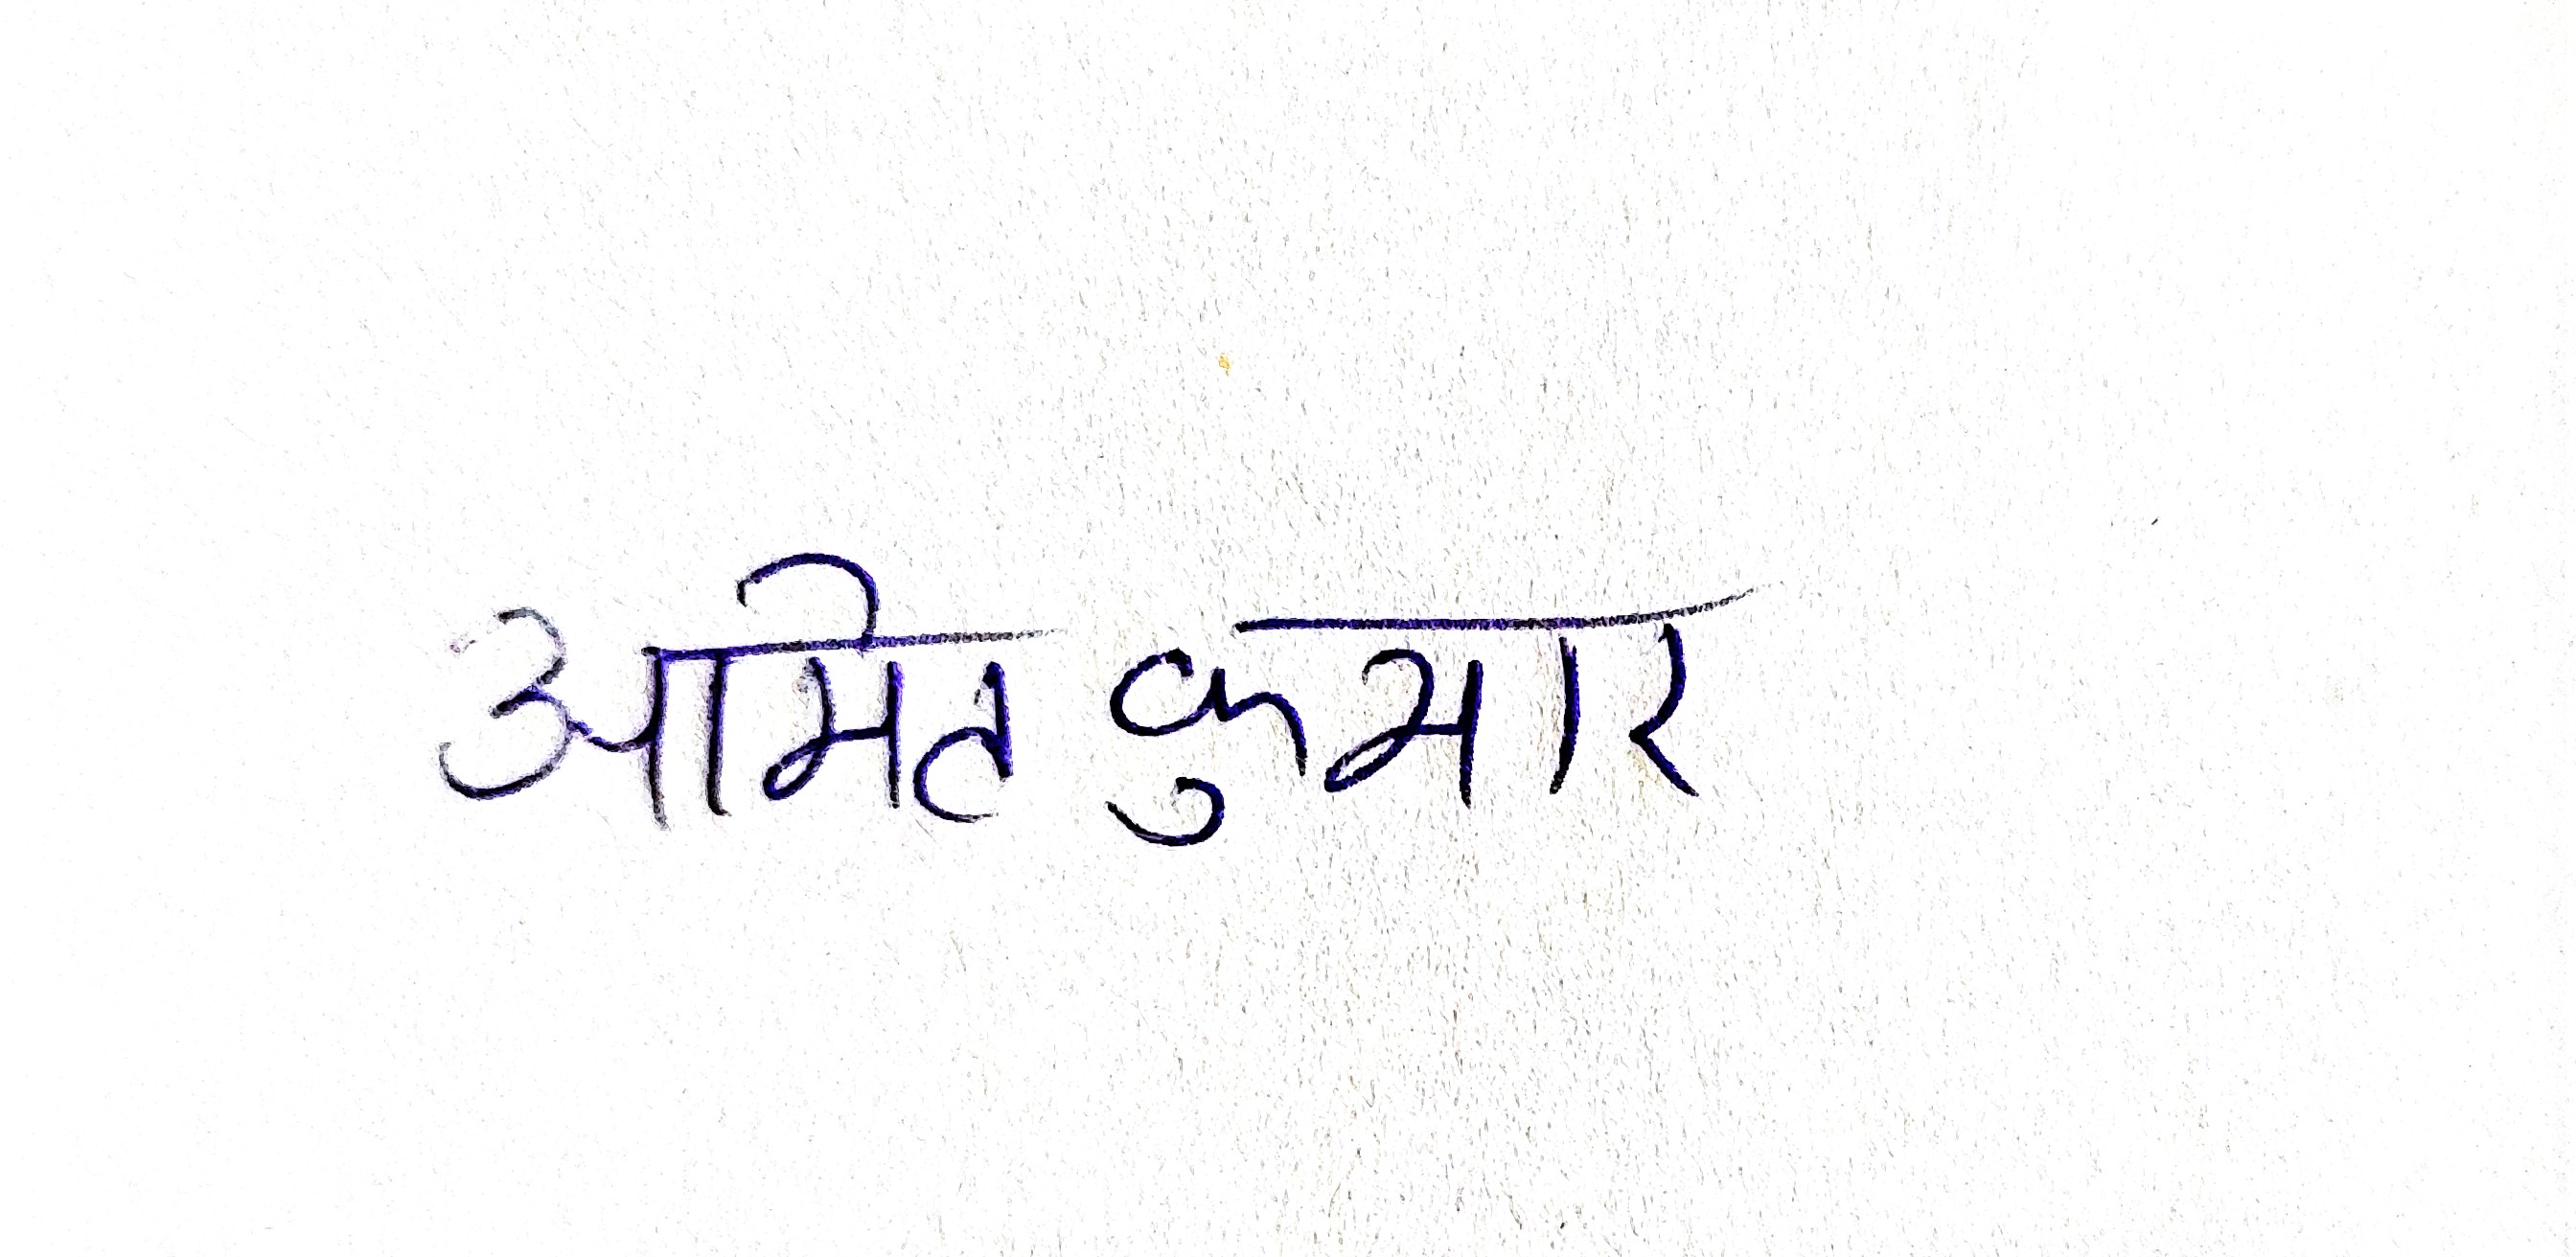 अमित कुमार